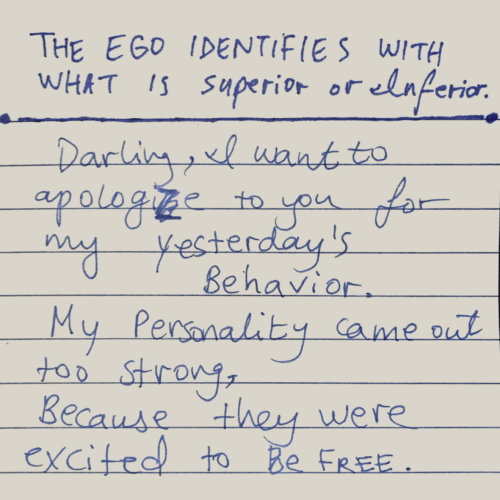 THE EGO IDENTIFIES WITH
WHAT IS Superior or Inferior.
Darling, I want to
apologize to you for
my yesterday's
Behavior.
My Personality came out
too strong,
Because they were
excited to Be FREE.